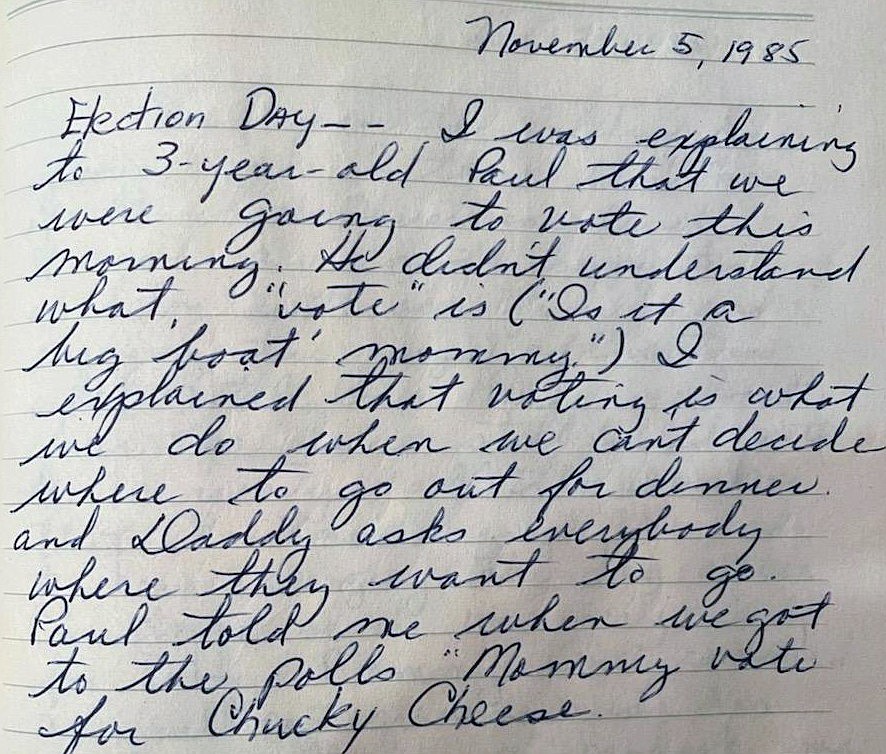 November 5, 1985
Election Day-- I was explaining
to 3-year-old Paul that we
were going to vote this
morning. He didn't understand
what "vote" is ("Is it a
big boat' mommy.") I
explained that voting is what
we do when we can't decide
where to go out for dinner.
and Daddy asks everybody
where they want to go.
Paul told me when we got
to the polls "Mommy vote
for Chucky Cheese.